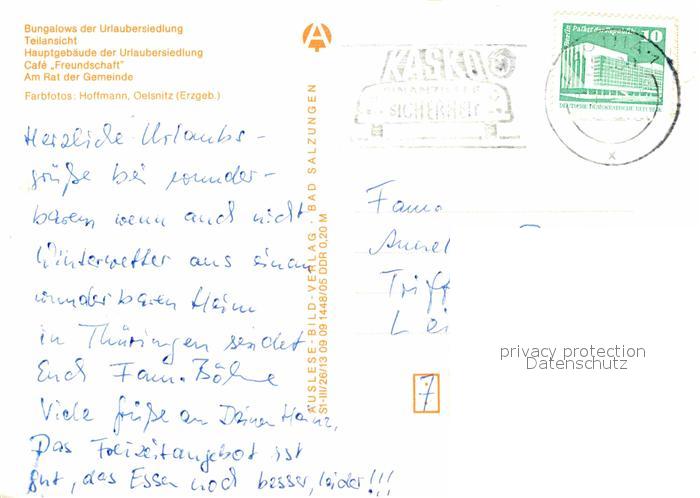 Bungalows der Urlaubersiedlung
Teilansicht
Hauptgebäude der Urlaubersiedlung
Café „Freundschaft"
Am Rat der Gemeinde
Farbfotos: Hoffmann, Oelsnitz (Erzgeb.)
Herzliche Urlaubs-
grüße bei wunder-
barem wenn auch nicht
Winterwetter aus einem
wunderbaren Heim
in Thüringen sendet
Euch Fam. Böhne
Viele Grüße an Deinen Heinz,
Das Freizeitangebot ist
gut, das Essen noch besser, leider!!!
AUSLESE-BILD-VERLAG · BAD SALZUNGEN
S1-III/26/13 09 09 1448/05 DDR 0,20 M
KASKO
FINANZIELLE
SICHERHEIT
Berlin, Palast der Republik
10
DEUTSCHE DEMOKRATISCHE REPUBLIK
Fam.
Triff
7
privacy protection
Datenschutz